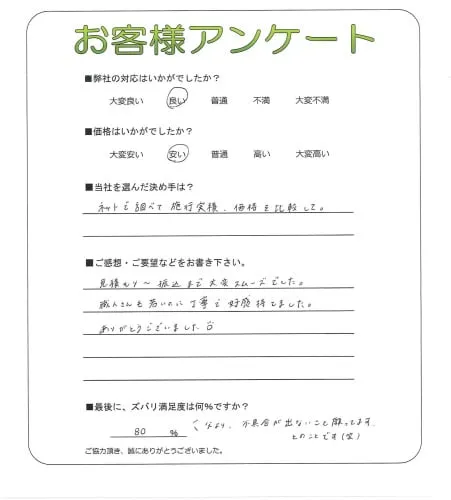 お客様アンケート
■弊社の対応はいかがでしたか？
大変良い 良い 普通 不満 大変不満
■価格はいかがでしたか？
大変安い 安い 普通 高い 大変高い
■当社を選んだ決め手は？
ネットで調べて施行実積、価格を比較して。
■ご感想・ご要望などをお書き下さい。
見積もり〜振込まで大変スムーズでした。
職人さんも若いのに丁寧で好感持てました。
ありがとうございました
■最後に、ズバリ満足度は何%ですか？
80 % 不具合が出ないこと願ってます。
とのことです(笑)
ご協力頂き、誠にありがとうございました。